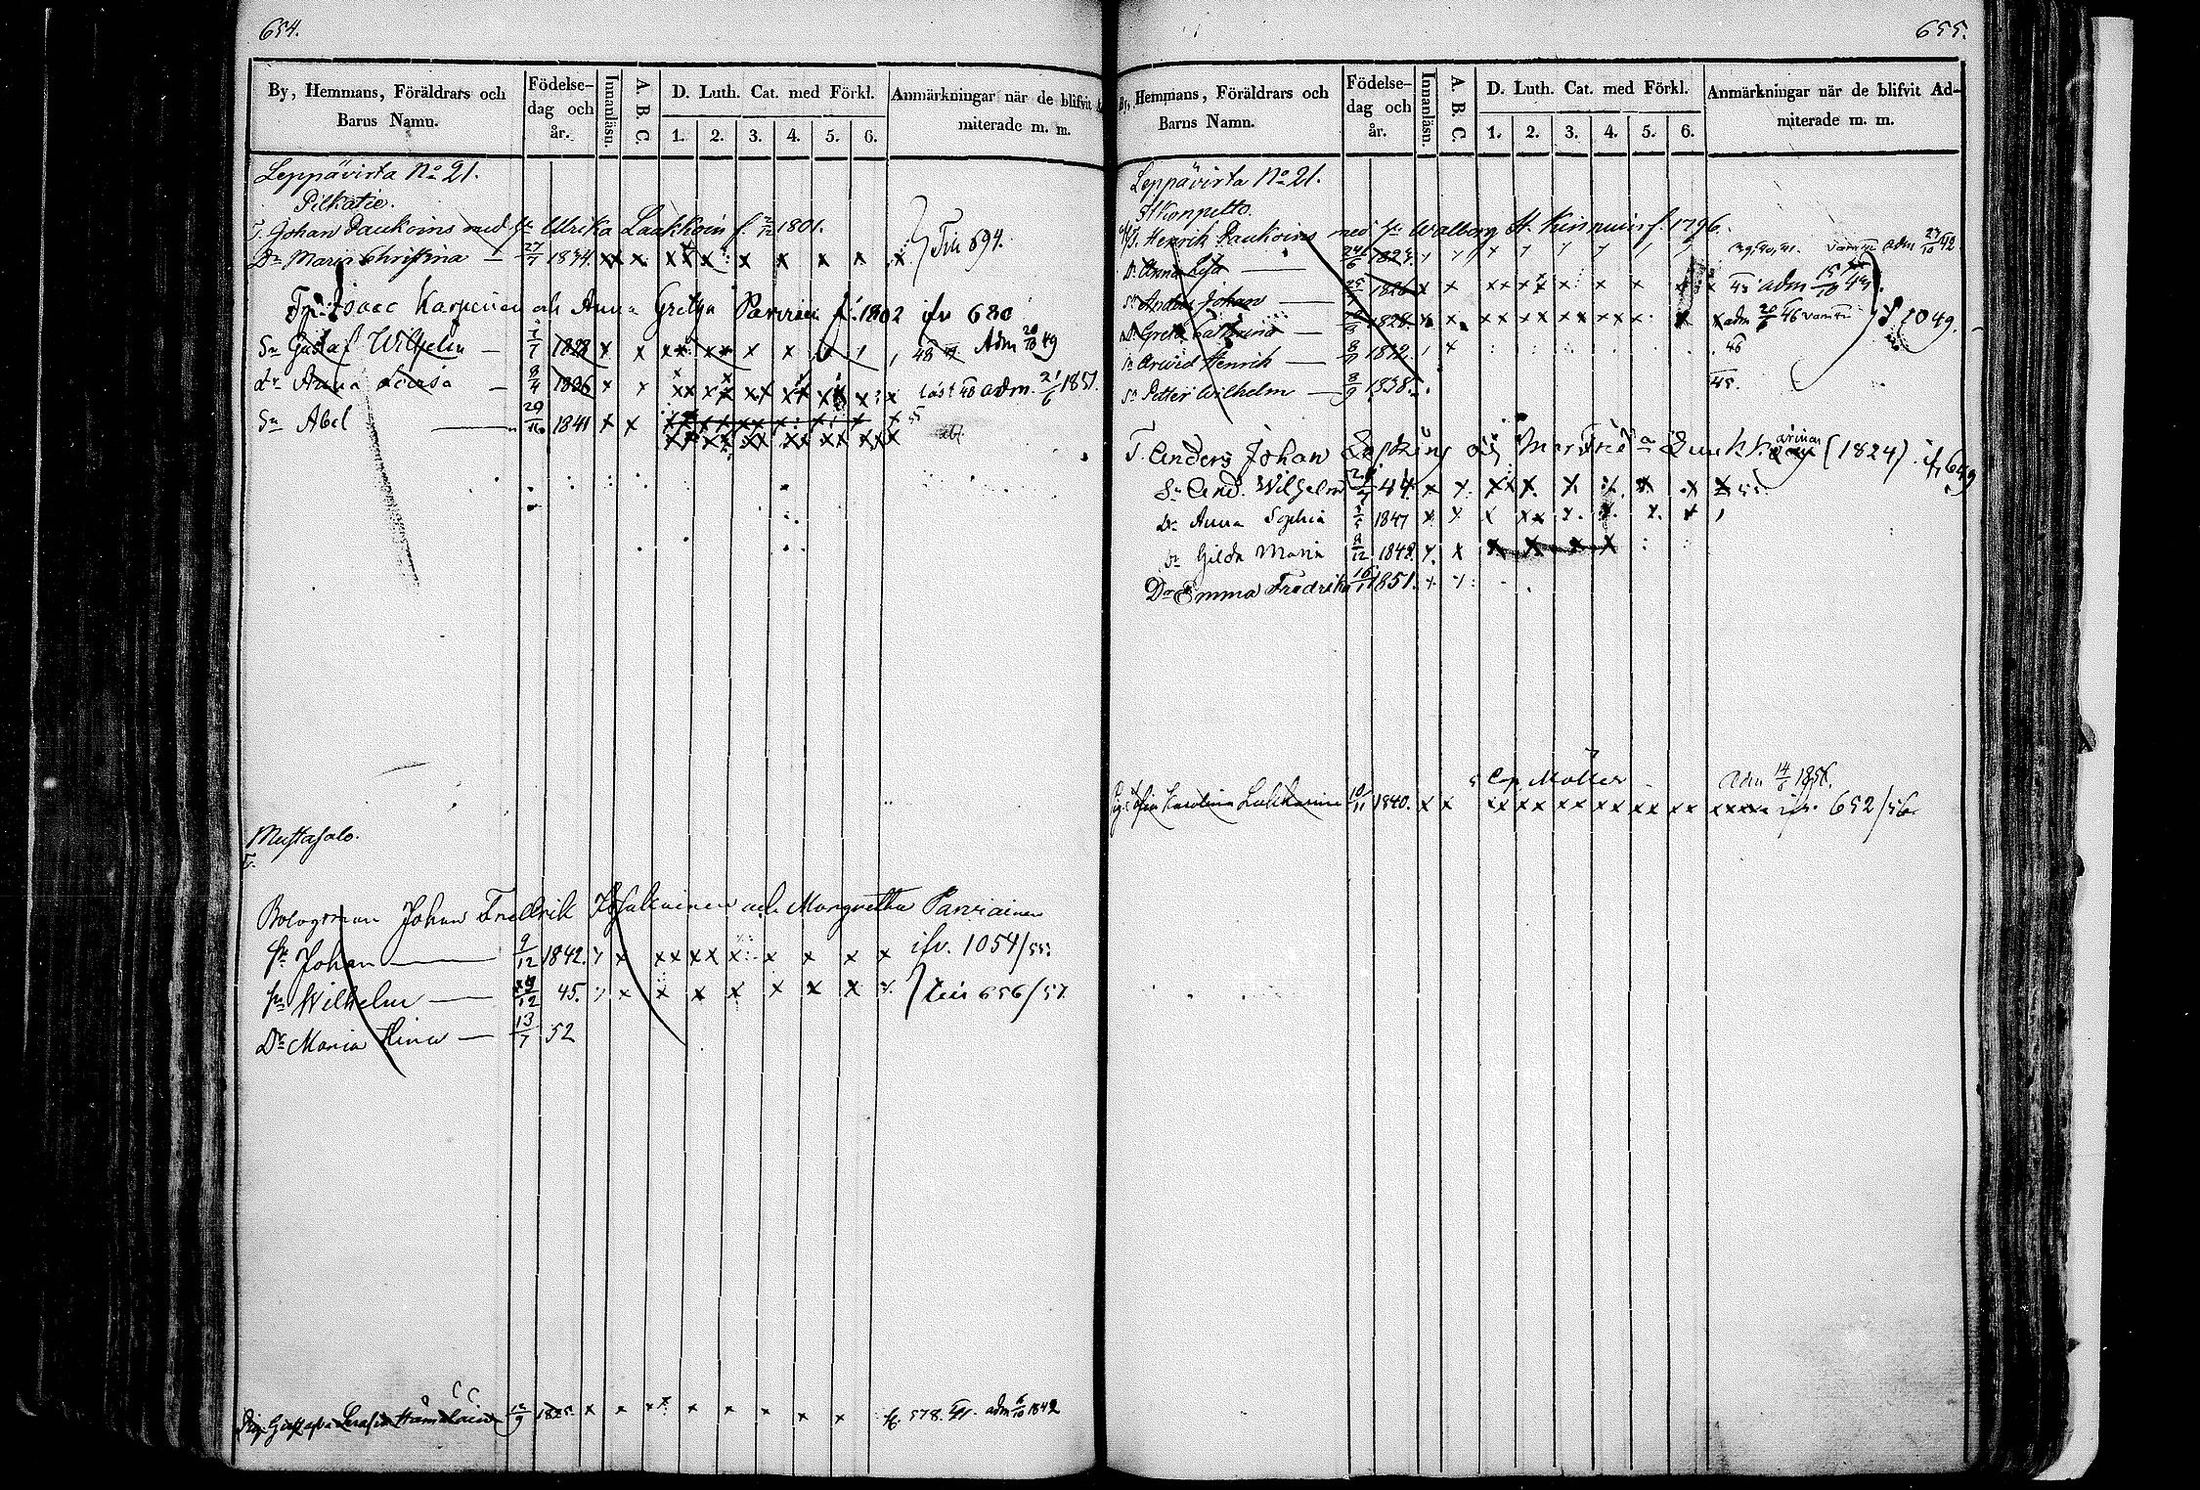 654.
By, Hemmans, Föräldrars och Barns Namn.
Födelse-dag och år.
Innanläsn.
A. B. C.
D. Luth. Cat. med Förkl.
1. 2. 3. 4. 5. 6.
Anmärkningar när de blifvit Admiterade m. m.
Leppävirta No 21.
Pilkatie.
T. Johan Paukoins med hu Ulrika Laakkoin f. 1801.
Dr Maria Christina — 27/7 1834. x x x x x x x x x } Till 694.
Isaac Karpeinen och Anna Gretha Parvinen f. 1802 ifr 680
Sn Gustaf Wilhelm — 1/7 1828 x x x x x x 48 Adm 20/10 49
dr Anna Lovisa — 8/4 1836 x x xx xx xx xx xx x adm. 21/6 1851.
Sn Abel — 29/11 1841 x x xx xx xx xx xx xxx 55
Mustasalo.
T.
Bolagsman Johan Fredrik och Margretha Parviainen
sn Johan — 9/12 1842. x xx xx x x x x x ifr. 1054/55.
sn Wilhelm — 29/12 45. x x x x x x x } till 656/57
Dr Maria Stina — 13/7 52
Pig. Gustafva Serafia Hämäläin 12/9 1825 x x x x x x x x x fr. 578. adm 6/10 1842
655.
By, Hemmans, Föräldrars och Barns Namn.
Födelse-dag och år.
Innanläsn.
A. B. C.
D. Luth. Cat. med Förkl.
1. 2. 3. 4. 5. 6.
Anmärkningar när de blifvit Admiterade m. m.
Leppävirta No 21.
T. Henrik Paukoins med hu Walborg A. Kinnuin f. 1796.
Dr Anna Lisa — 24/6 1823. 39, 40, 41. adm 23/10 42.
sn Anders Johan — 25/7 1826 x x xx xx x x x x 43 adm 15/10 45
Dr Greta Catharina — 1828. x x xx xx xx xx x x adm 20/6 46 } 1049.
sn Arvid Henrik — 8/9 1832. x 46
sn Petter Wilhelm — 8/9 1838. 45.
T. Anders Johan och (1824) ifr 649
Sn And. Wilhelm 44. x x xx x x x x x x 55
Dr Anna Sophia 1847 x x x xx x x x x
dr Gilda Maria 8/12 1848. x x x x x x
Dr Emma Fredrika 16/1 1851. x x
Cop. Möller Adm 14/6 1856.
Karolina Lukkarinen 10/11 1840. x x xx xx xx xx xx xx xxxx ifr. 652/56.